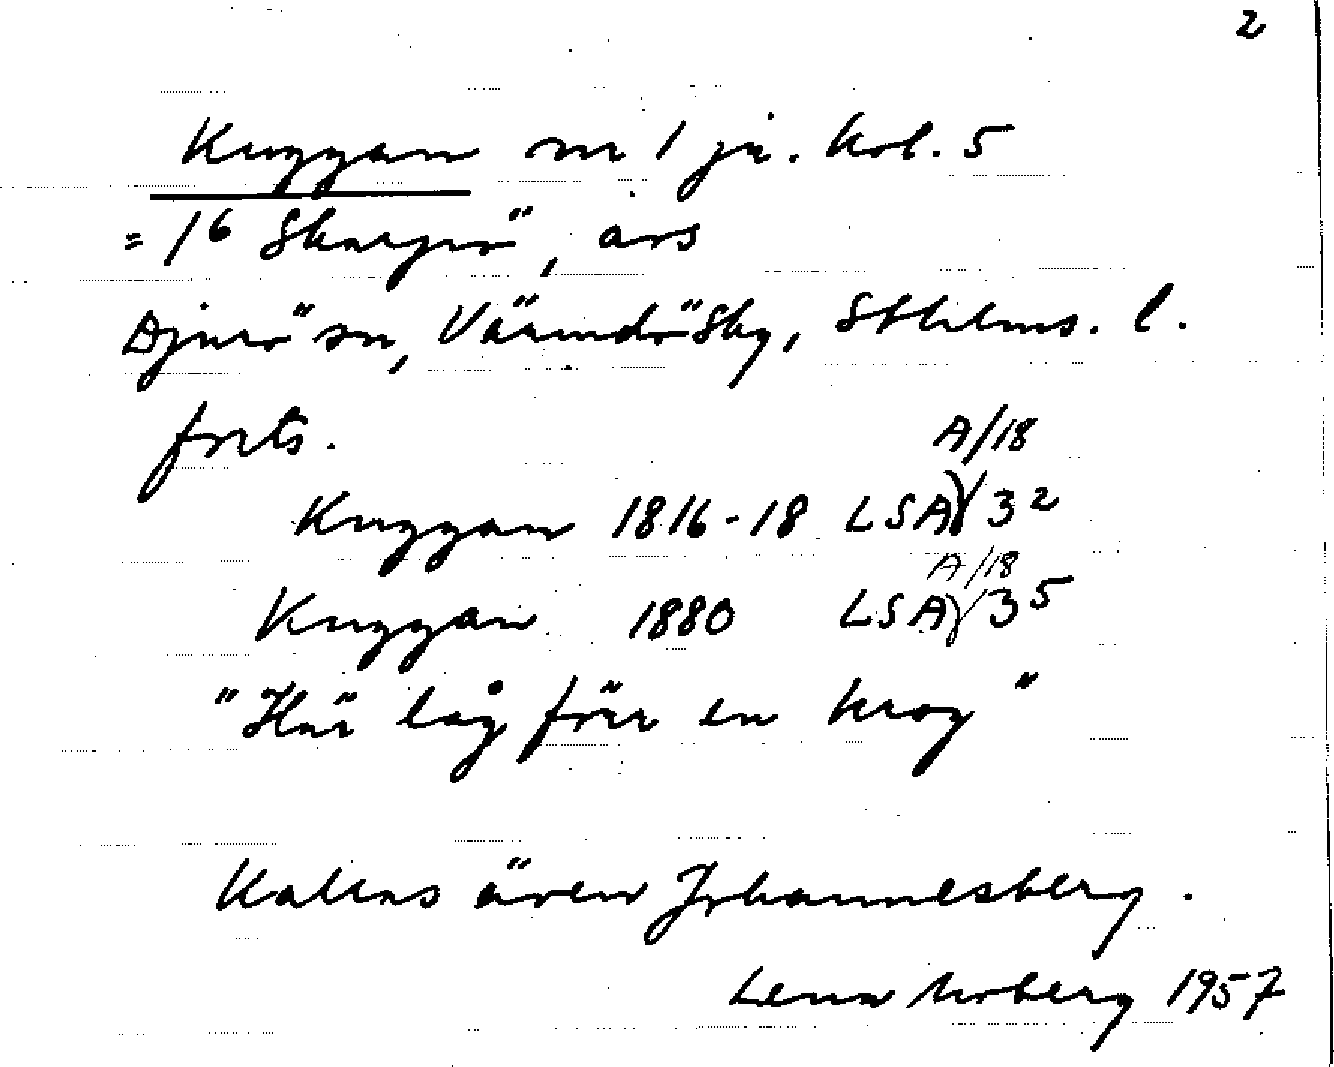 2
Kuggan nr 1 jr. kol. 5
= 1⁶ Skarpö, avs
Djurö sn, Värmdö Skg, Sthlms. l.
forts.
A/18
Kuggan 1816-18 LSA 3²
A/18
Kuggan 1880 LSA 3⁵
"Här låg förr en krog"
Kallas även Johannesberg.
Lena Moberg 1957